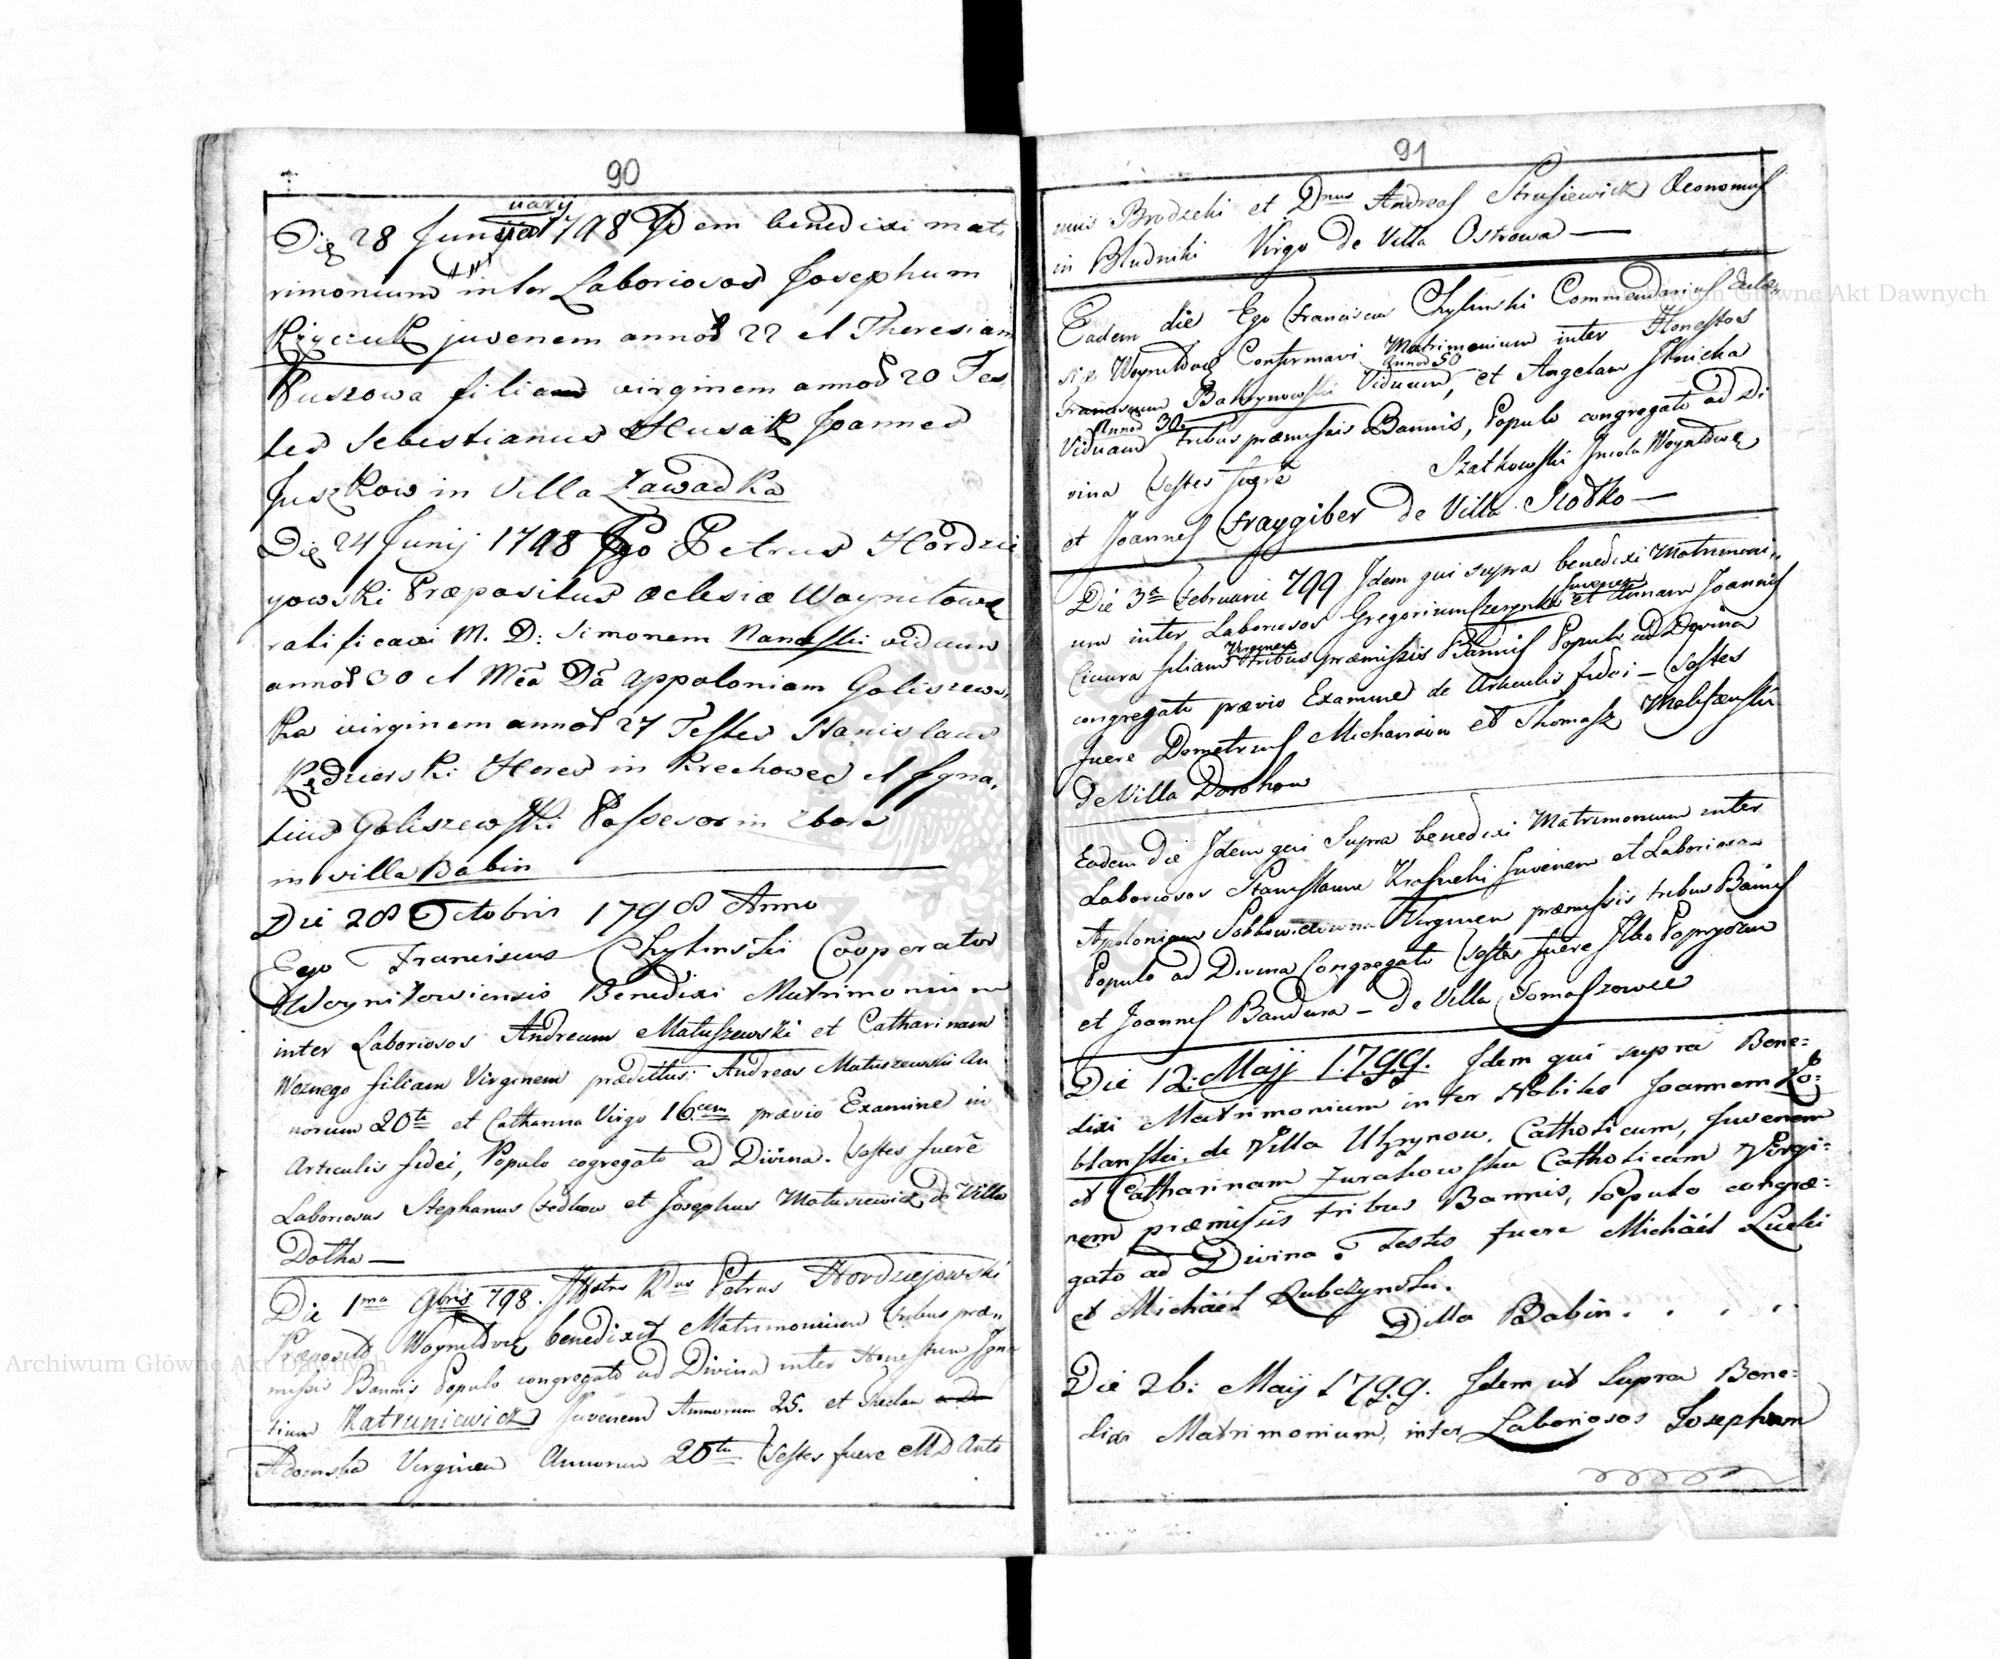 90
uary
Die 28 Junija 1798 Idem benedixi mat,
rimonium inter Laboriosos Josephum
Kryczuk juvenem annoȓ 22 et Theresiam
Puszowa filiam virginem annoȓ 20 Tes,
tes Sebestianus Husak Joannes
Juszkow in Villa Zawadka
Die 24 Junij 1798 Ego Petrus Hordzie
yowski Præpositus Æclesiæ Woynilowę
ratificavi M. D: Simonem viduum
annoȓ 30 et Mča Dã Appoloniam Goliszews,
ka virginem annoȓ 27 Testes Stanislaus
Kędzierski Heres in Krechowec et Igna,
tius Goliszewski Possesor in Zbora
in villa Babin
Die 28 Octobris 1798 Anno
Ego Franciscus Chylinski Cooperator
Woynilowiensis Benedixi Matrimonium
inter Laboriosos Andream Matuszewski et Catharinam
Woznego filiam Virginem prædittus: Andreas Matuszewski An
norum 20ta et Catharina Virgo 16cem prævio Examine in
Articulis fidei, Populo cogregato ad Divina. Testes fuerě
Laboriosus Stephanus Fedkow et Josephus Matusiewicz de Villa
Dołha —
Die 1ma 9bris 798. Rdus Petrus Hordziejowski
Præposito Woyniłovię benedixit Matrimonium tribus præ,,
missis Bannis Populo congregato ad Divina inter Honestum Igna
tium Katruniewicz Juvenem Annorum 25. et Theclam
Virginem Annorum 20ta Testes fuere MD Anto
91
nius Brodzcki et Dnus Andreas Strusiewicz Œconomus
in Bludniki Virgo de Villa Ostrowa —
Eadem die Ego Franciscus Chylinski Commendarius Ecclæ,
siæ Woyniłovię Confirmavi Matrimonium inter Honestos
Annoȓ 50
Franciscum Viduum, et Angelam
Annoȓ 30.
Viduam tribus præmissis Bannis, Populo congregato ad Di
vina Testes fuerě Szatkowski Incola Woyniłovę
et Joannes Fraygiber de Villa Słobko —
Die 3a Februarii 799 Idem qui supra benedixi Matrimoni,,
Juvenem
um inter Laboriosos Gregorium et Annam Joannis
Virginem
Ciciura filiam tribus præmissis Bannis Populo ad Divina
congregato prævio Examine de Articulis fidei — Testes
fuere Dometrius Michaniow et Thomasz
de Villa Dorohow
Eadem die Idem qui Supra benedixi Matrimonium inter
Laboriosos Stanislaum Krasucki Juvenem et Laboriosam
Apoloniam Virginem præmissis tribus Bannis
Populo ad Divina Congregato Testes fuere Ilko
et Joannes Bandura — de Villa Tomaszowce
Die 12. Maij 1.7.9.9. Idem qui supra Bene=
dixi Matrimonium inter Nobiles Joannem Ko=
blanski, de Villa Uhrynow, Catholicum, Juvenem
et Catharinam Zurakowska Catholicam Virgi=
nem præmissis tribus Bannis, Populo congre=
gato ad Divina. Testes fuere Michäel Łucki
et Michäel Rubczynski.
Villa Babin. . . . .
Die 26: Maij 1799. Idem ut Supra Bene=
dixi Matrimonium, inter Laboriosos Josephum
Archiwum Główne Akt Dawnych
Archiwum Główne Akt Dawnych